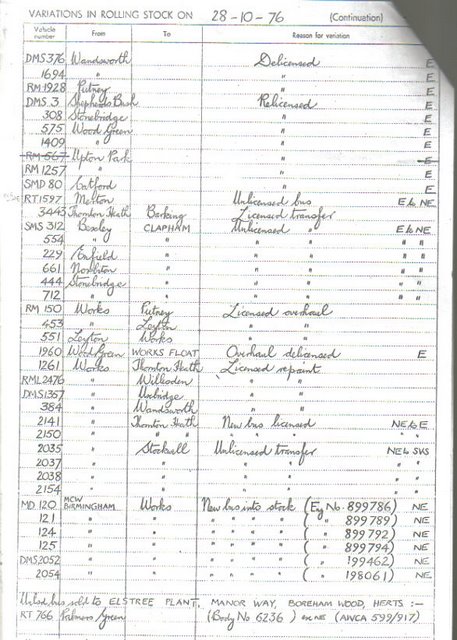 VARIATIONS IN ROLLING STOCK ON 28-10-76 (Continuation)
Vehicle number From To Reason for variation
DMS 376 Wandsworth Delicensed E
1694 " " E
RM 1928 Putney " E
DMS 3 Shepherds Bush Relicensed E
308 Stonebridge " E
575 Wood Green " E
1409 " " E
RM 567 Upton Park " E
RM 1257 " " E
SMD 80 Catford " E
RT 1597 Merton Unlicensed bus E to NE
3443 Thornton Heath Barking Licensed transfer
SMS 312 Bexley CLAPHAM Unlicensed " E to NE
554 " " " " " "
229 Enfield " " " " "
661 Norbiton " " " " "
444 Stonebridge " " " " "
712 " " " " " "
RM 150 Works Putney Licensed overhaul
453 " Leyton " "
551 Leyton Works " "
1960 Wood Green WORKS FLOAT Overhaul delicensed E
1261 Works Thornton Heath Licensed repaint
RML 2476 " Willesden " "
DMS 1357 " Uxbridge " "
384 " Wandsworth " "
2141 " Thornton Heath New bus licensed NE to E
2150 " " " " " " " "
2035 " Stockwell Unlicensed transfer NE to SVS
2037 " " " " "
2038 " " " " "
2154 " " " " "
MD 120 MCW BIRMINGHAM Works New bus into stock (Eng No. 899786) NE
121 " " " " " " ( " 899789) NE
124 " " " " " " ( " 899792) NE
125 " " " " " " ( " 899794) NE
DMS 2052 " " " " " " ( " 199462) NE
2054 " " " " " " ( " 198061) NE
Unlicd. bus sold to ELSTREE PLANT, MANOR WAY, BOREHAM WOOD, HERTS :-
RT 766 Palmers Green (Body No 6236) ex NE (AWCA 599/917)